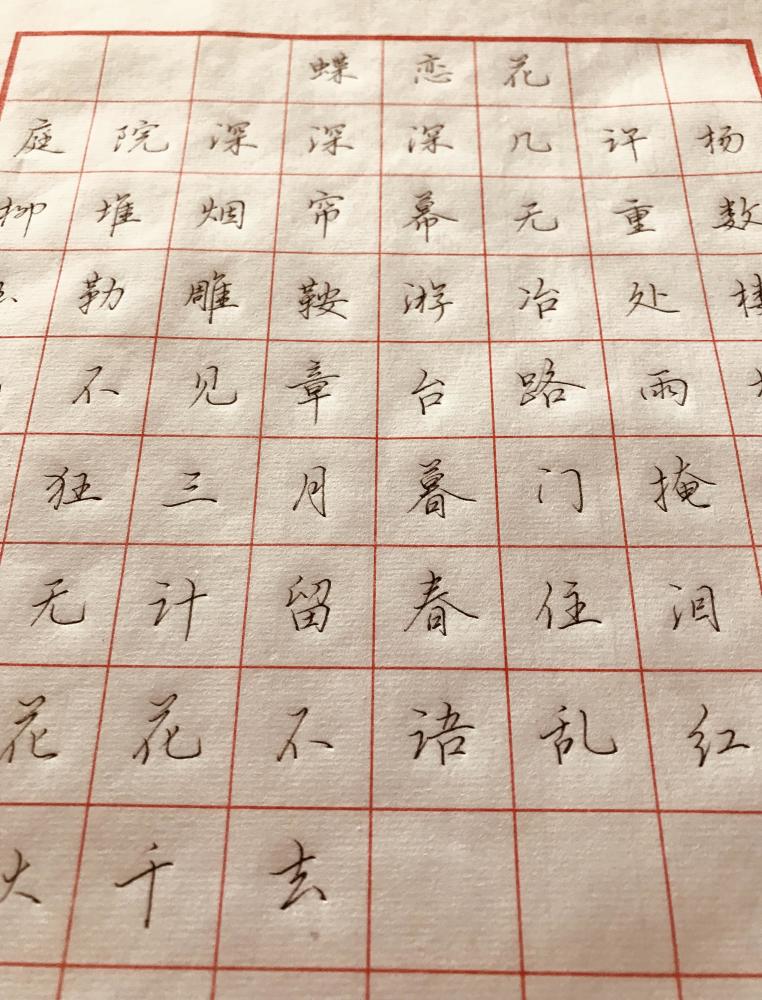 蝶恋花
庭院深深深几许杨
柳堆烟帘幕无重数
勒雕鞍游冶处楼
不见章台路雨
狂三月暮门掩
无计留春住泪
花花不语乱红
千去